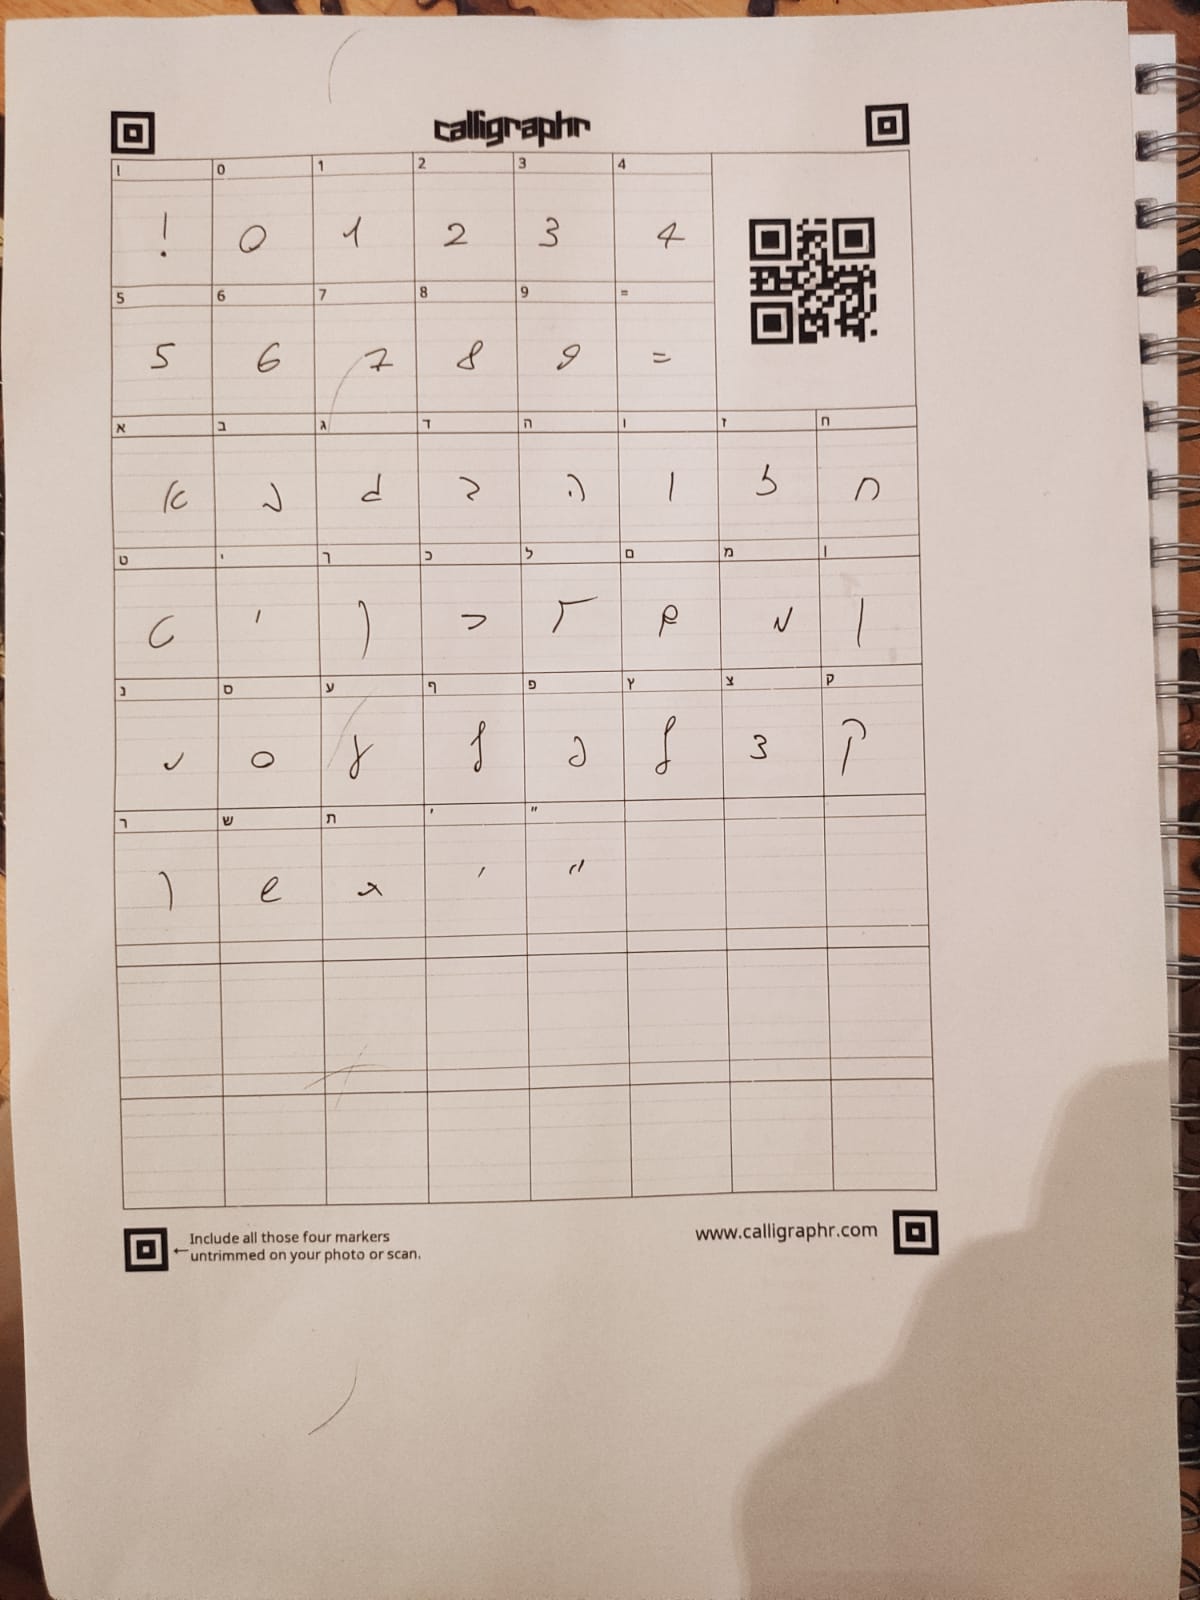 calligraphr
! 0 1 2 3 4
! 0 1 2 3 4
5 6 7 8 9 =
5 6 7 8 9 =
א ב ג ד ה ו ז ח
א ב ג ד ה ו ז ח
ט י ך כ ל ם מ ן
ט י ך כ ל ם מ ן
נ ס ע ף פ ץ צ ק
נ ס ע ף פ ץ צ ק
ר ש ת ' "
ר ש ת ' "
Include all those four markers
←untrimmed on your photo or scan.
www.calligraphr.com